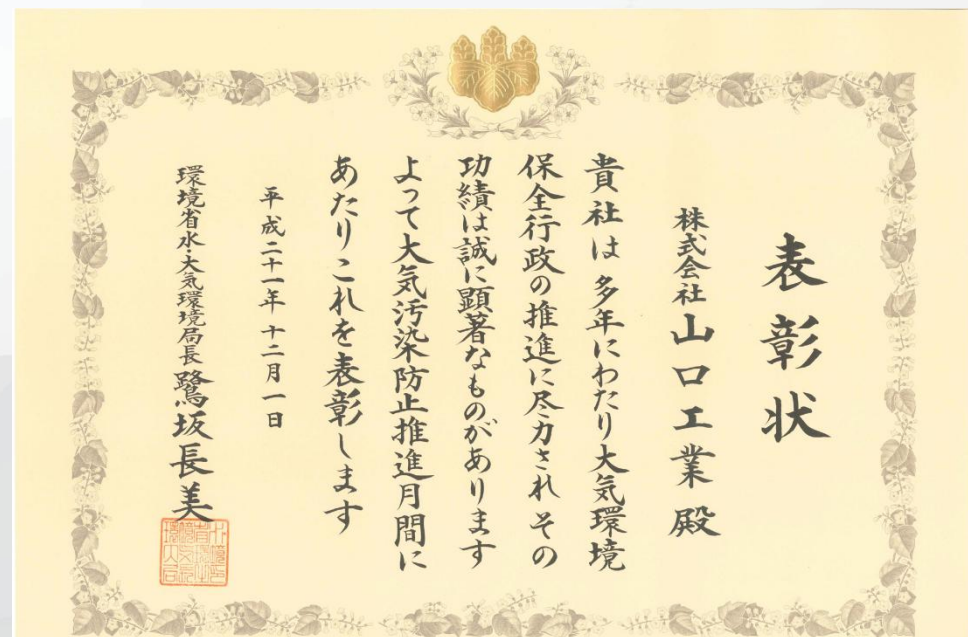 表彰状
株式会社山口工業殿
貴社は多年にわたり大気環境
保全行政の推進に尽力されその
功績は誠に顕著なものがあります
よって大気汚染防止推進月間に
あたりこれを表彰します
平成二十一年十二月一日
環境省水・大気環境局長鷺坂長美